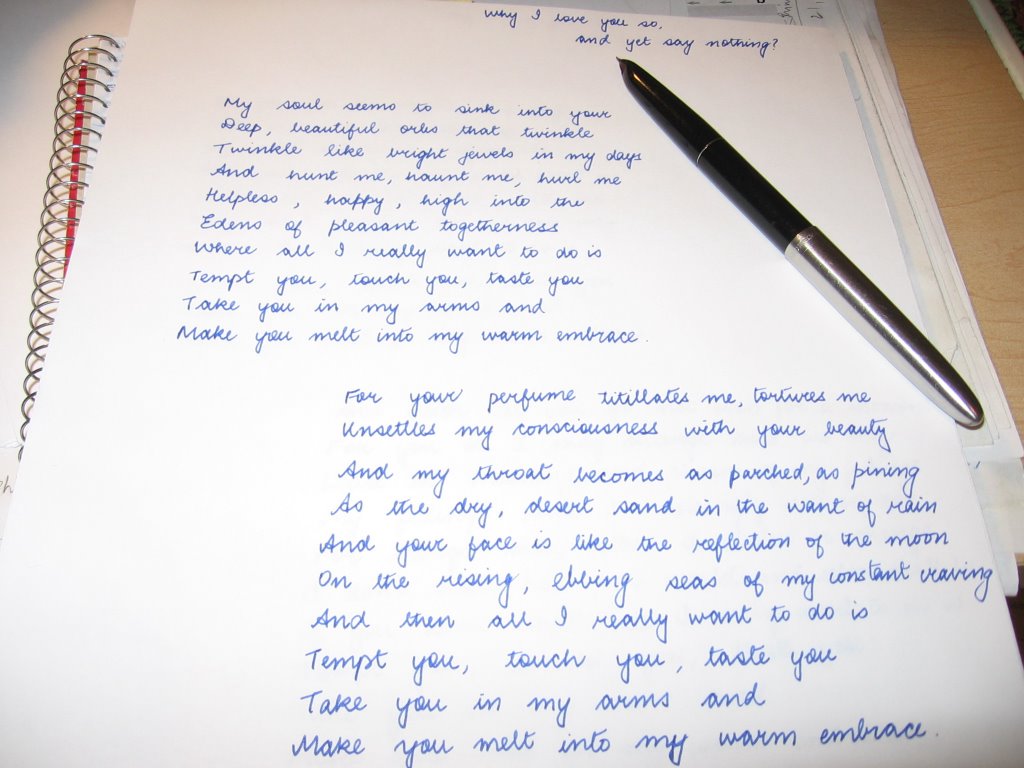 Why I love you so,
and yet say nothing?
My soul seems to sink into your
Deep, beautiful orbs that twinkle
Twinkle like bright jewels in my days
And hunt me, haunt me, hurl me
Helpless, happy, high into the
Edens of pleasant togetherness
Where all I really want to do is
Tempt you, touch you, taste you
Take you in my arms and
Make you melt into my warm embrace.
For your perfume titillates me, tortures me
Unsettles my consciousness with your beauty
And my throat becomes as parched, as pining
As the dry, desert sand in the want of rain
And your face is like the reflection of the moon
On the rising, ebbing seas of my constant craving
And then all I really want to do is
Tempt you, touch you, taste you
Take you in my arms and
Make you melt into my warm embrace.